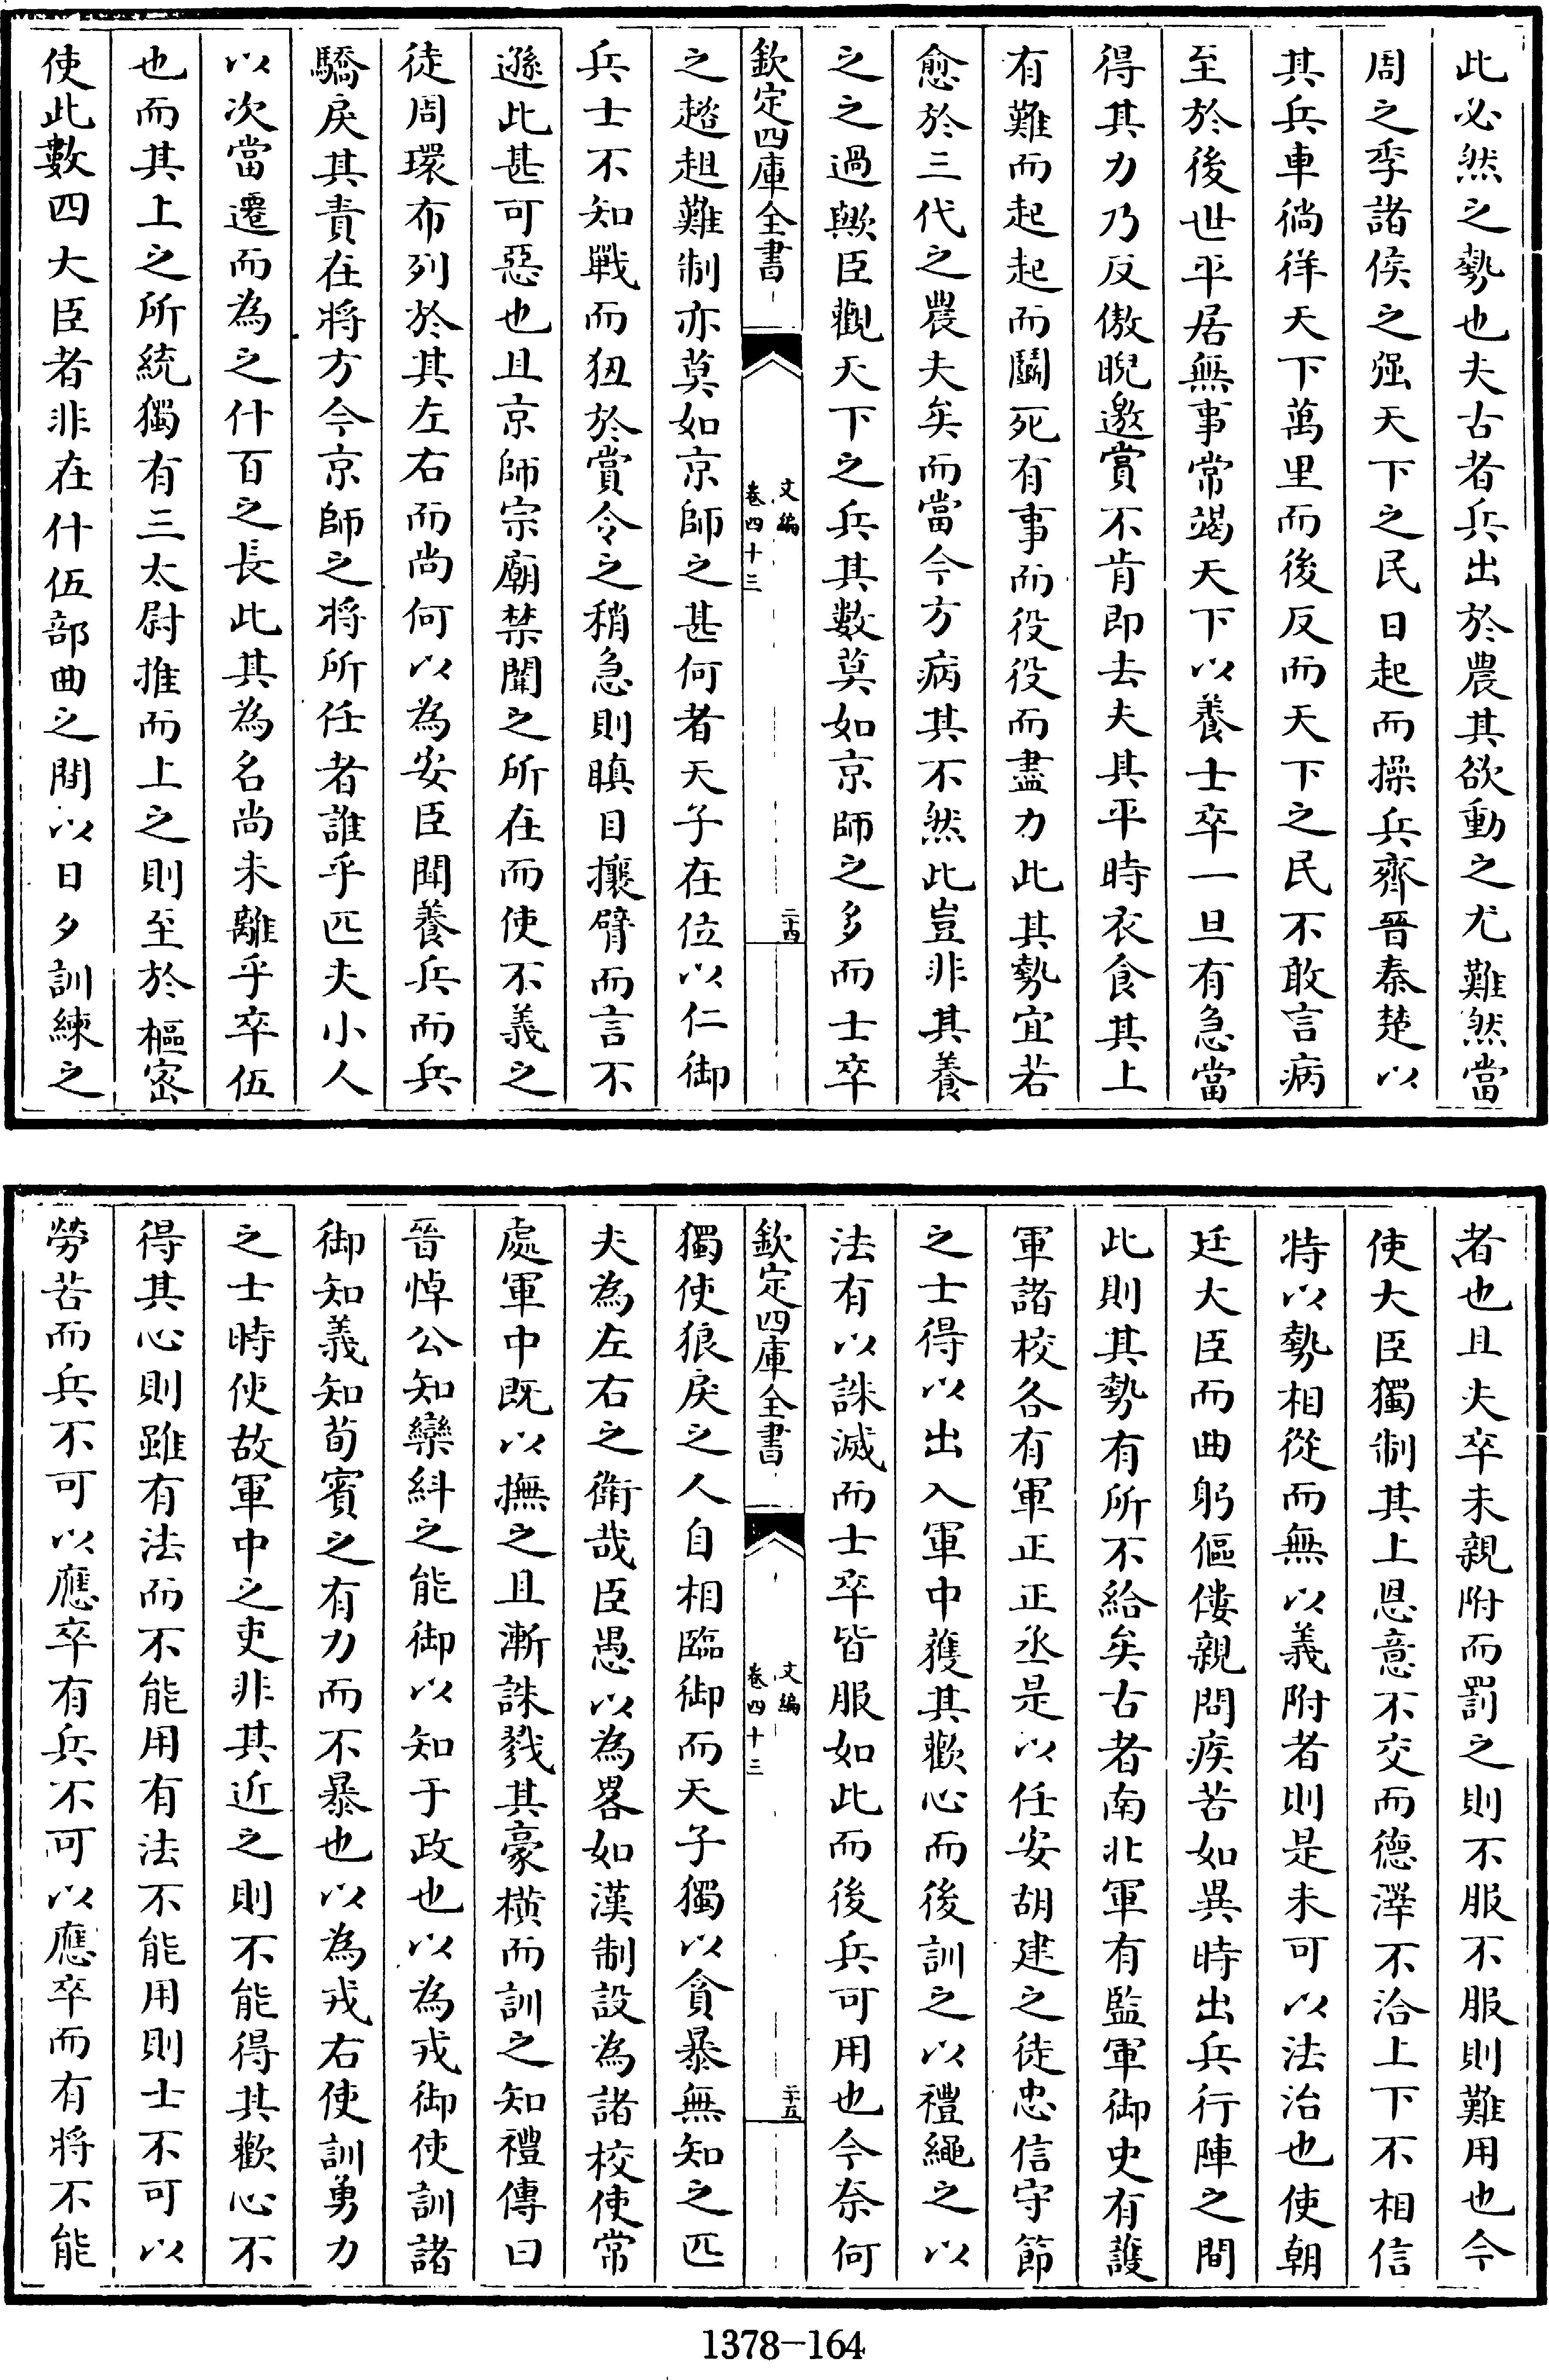 此必然之勢也夫古者兵出於農其欲動之尤難然當
周之季諸侯之强天下之民日起而操兵齊晉秦楚以
其兵車徜徉天下萬里而後反而天下之民不敢言病
至於後世平居無事常竭天下以養士卒一旦有急當
得其力乃反傲睨邀賞不肯即去夫其平時衣食其上
有難而起起而鬭死有事而役役而盡力此其勢宜若
愈於三代之農夫矣而當今方病其不然此豈非其養
之之過歟臣觀天下之兵其數莫如京師之多而士卒
欽定四庫全書
文編
卷四十三
二十四
之趦趄難制亦莫如京師之甚何者天子在位以仁御
兵士不知戰而狃於賞令之稍急則瞋目攘臂而言不
遜此甚可惡也且京師宗廟禁闥之所在而使不義之
徒周環布列於其左右而尚何以為安臣聞養兵而兵
驕戾其責在將方今京師之將所任者誰乎匹夫小人
以次當遷而為之什百之長此其為名尚未離乎卒伍
也而其上之所統獨有三太尉推而上之則至於樞密
使此數四大臣者非在什伍部曲之間以日夕訓練之
者也且夫卒未親附而罰之則不服不服則難用也今
使大臣獨制其上恩意不交而德澤不洽上下不相信
特以勢相從而無以義附者則是未可以法治也使朝
廷大臣而曲躬傴僂親問疾苦如異時出兵行陣之間
此則其勢有所不給矣古者南北軍有監軍御史有護
軍諸校各有軍正正丞是以任安胡建之徒忠信守節
之士得以出入軍中獲其歡心而後訓之以禮繩之以
法有以誅滅而士卒皆服如此而後兵可用也今奈何
欽定四庫全書
文編
卷四十三
二十五
獨使狼戾之人自相臨御而天子獨以貪暴無知之匹
夫為左右之衛哉臣愚以為畧如漢制設為諸校使常
處軍中既以撫之且漸誅戮其豪橫而訓之知禮傳曰
晉悼公知欒糾之能御以知于政也以為戎御使訓諸
御知義知荀賓之有力而不暴也以為戎右使訓勇力
之士時使故軍中之吏非其近之則不能得其歡心不
得其心則雖有法而不能用有法不能用則士不可以
勞苦而兵不可以應卒有兵不可以應卒而有將不能
1378-164